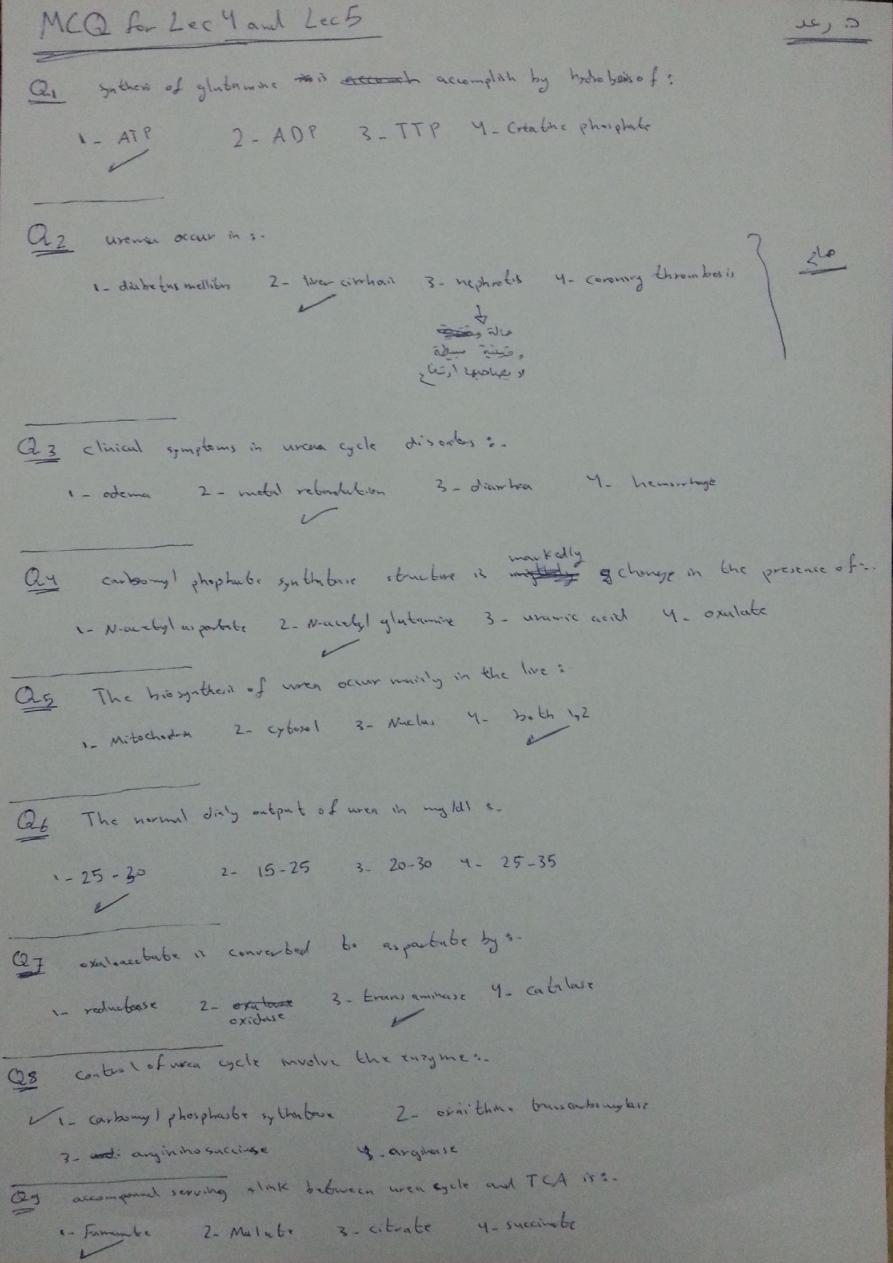 MCQ for Lec 4 and Lec 5
د. رعد
Q1 synthesis of glutamine is accomplish by hydrolysis of :
1- ATP 2- ADP 3- TTP 4- Creatine phosphate
Q2 uremia occur in :-
1- diabetus mellitus 2- liver cirrhosis 3- nephrotis 4- coronary thrombosis
حالة
وقتية بسيطة
لا يصاحبها ارتفاع
Q3 clinical symptoms in urea cycle disorders :-
1- odema 2- metal retardation 3- diarrhea 4- hemorrhage
Q4 carbomyl phophate synthetase structure is markedly change in the presence of :-
1- N-acetyl aspartate 2- N-acetyl glutamine 3- uramic acid 4- oxulate
Q5 The biosynthesis of urea occur mainly in the live :
1- Mitochodria 2- cytosol 3- Nuclus 4- both 1,2
Q6 The normal dialy output of urea in mg/dl :-
1- 25-30 2- 15-25 3- 20-30 4- 25-35
Q7 oxaloacetate is converted to aspartate by :-
1- reductease 2- oxidase 3- trans aminase 4- catalase
Q8 control of urea cycle involve the enzyme :-
1- carbomyl phosphaste sythatase 2- ornithine transcarbomylase
3- argininosuccinse 4- arginase
Q9 serving link between urea cycle and TCA is :-
1- Fumarate 2- Malate 3- citrate 4- succinate